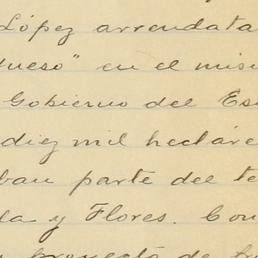 López arrendata
ueso" en el mis
Gobierno del Es
diez mil hectáre
ban parte del te
da y Flores. Con
proyecto de